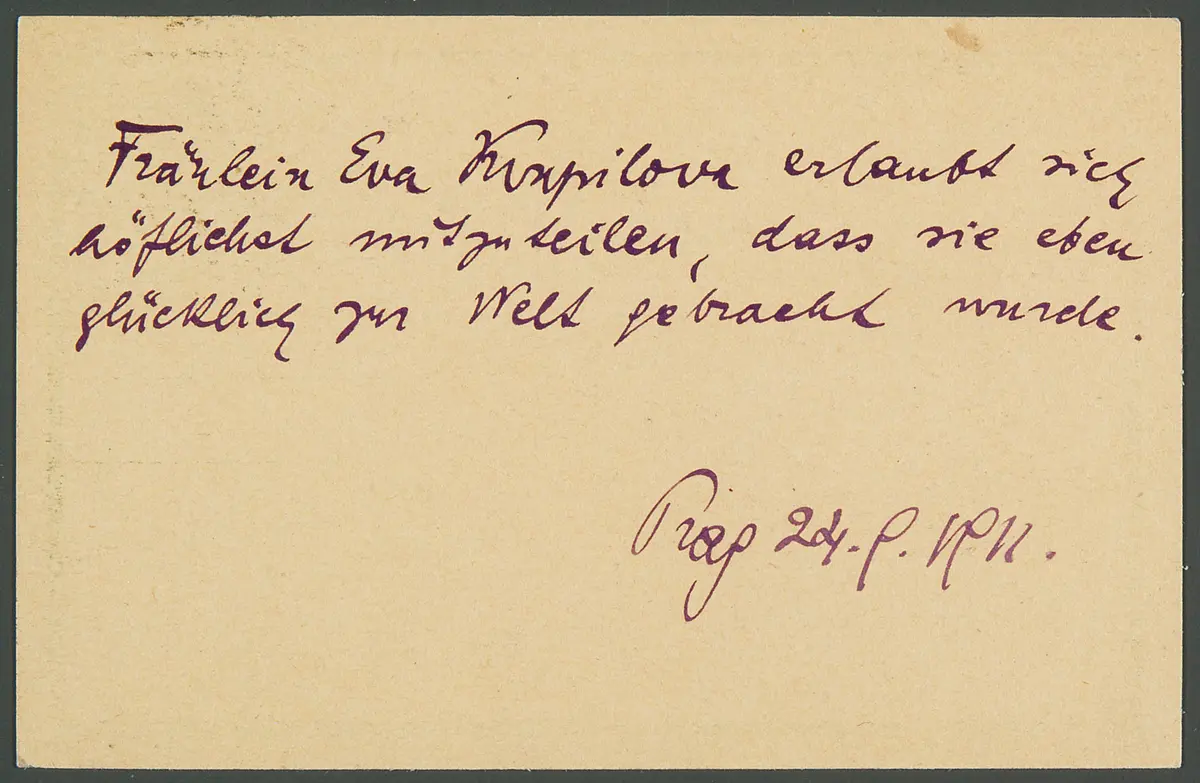 Fräulein Eva Kvapilova erlaubt sich
höflichst mitzuteilen, dass sie eben
glücklich zur Welt gebracht wurde.
Prag 24. 9. 1911.